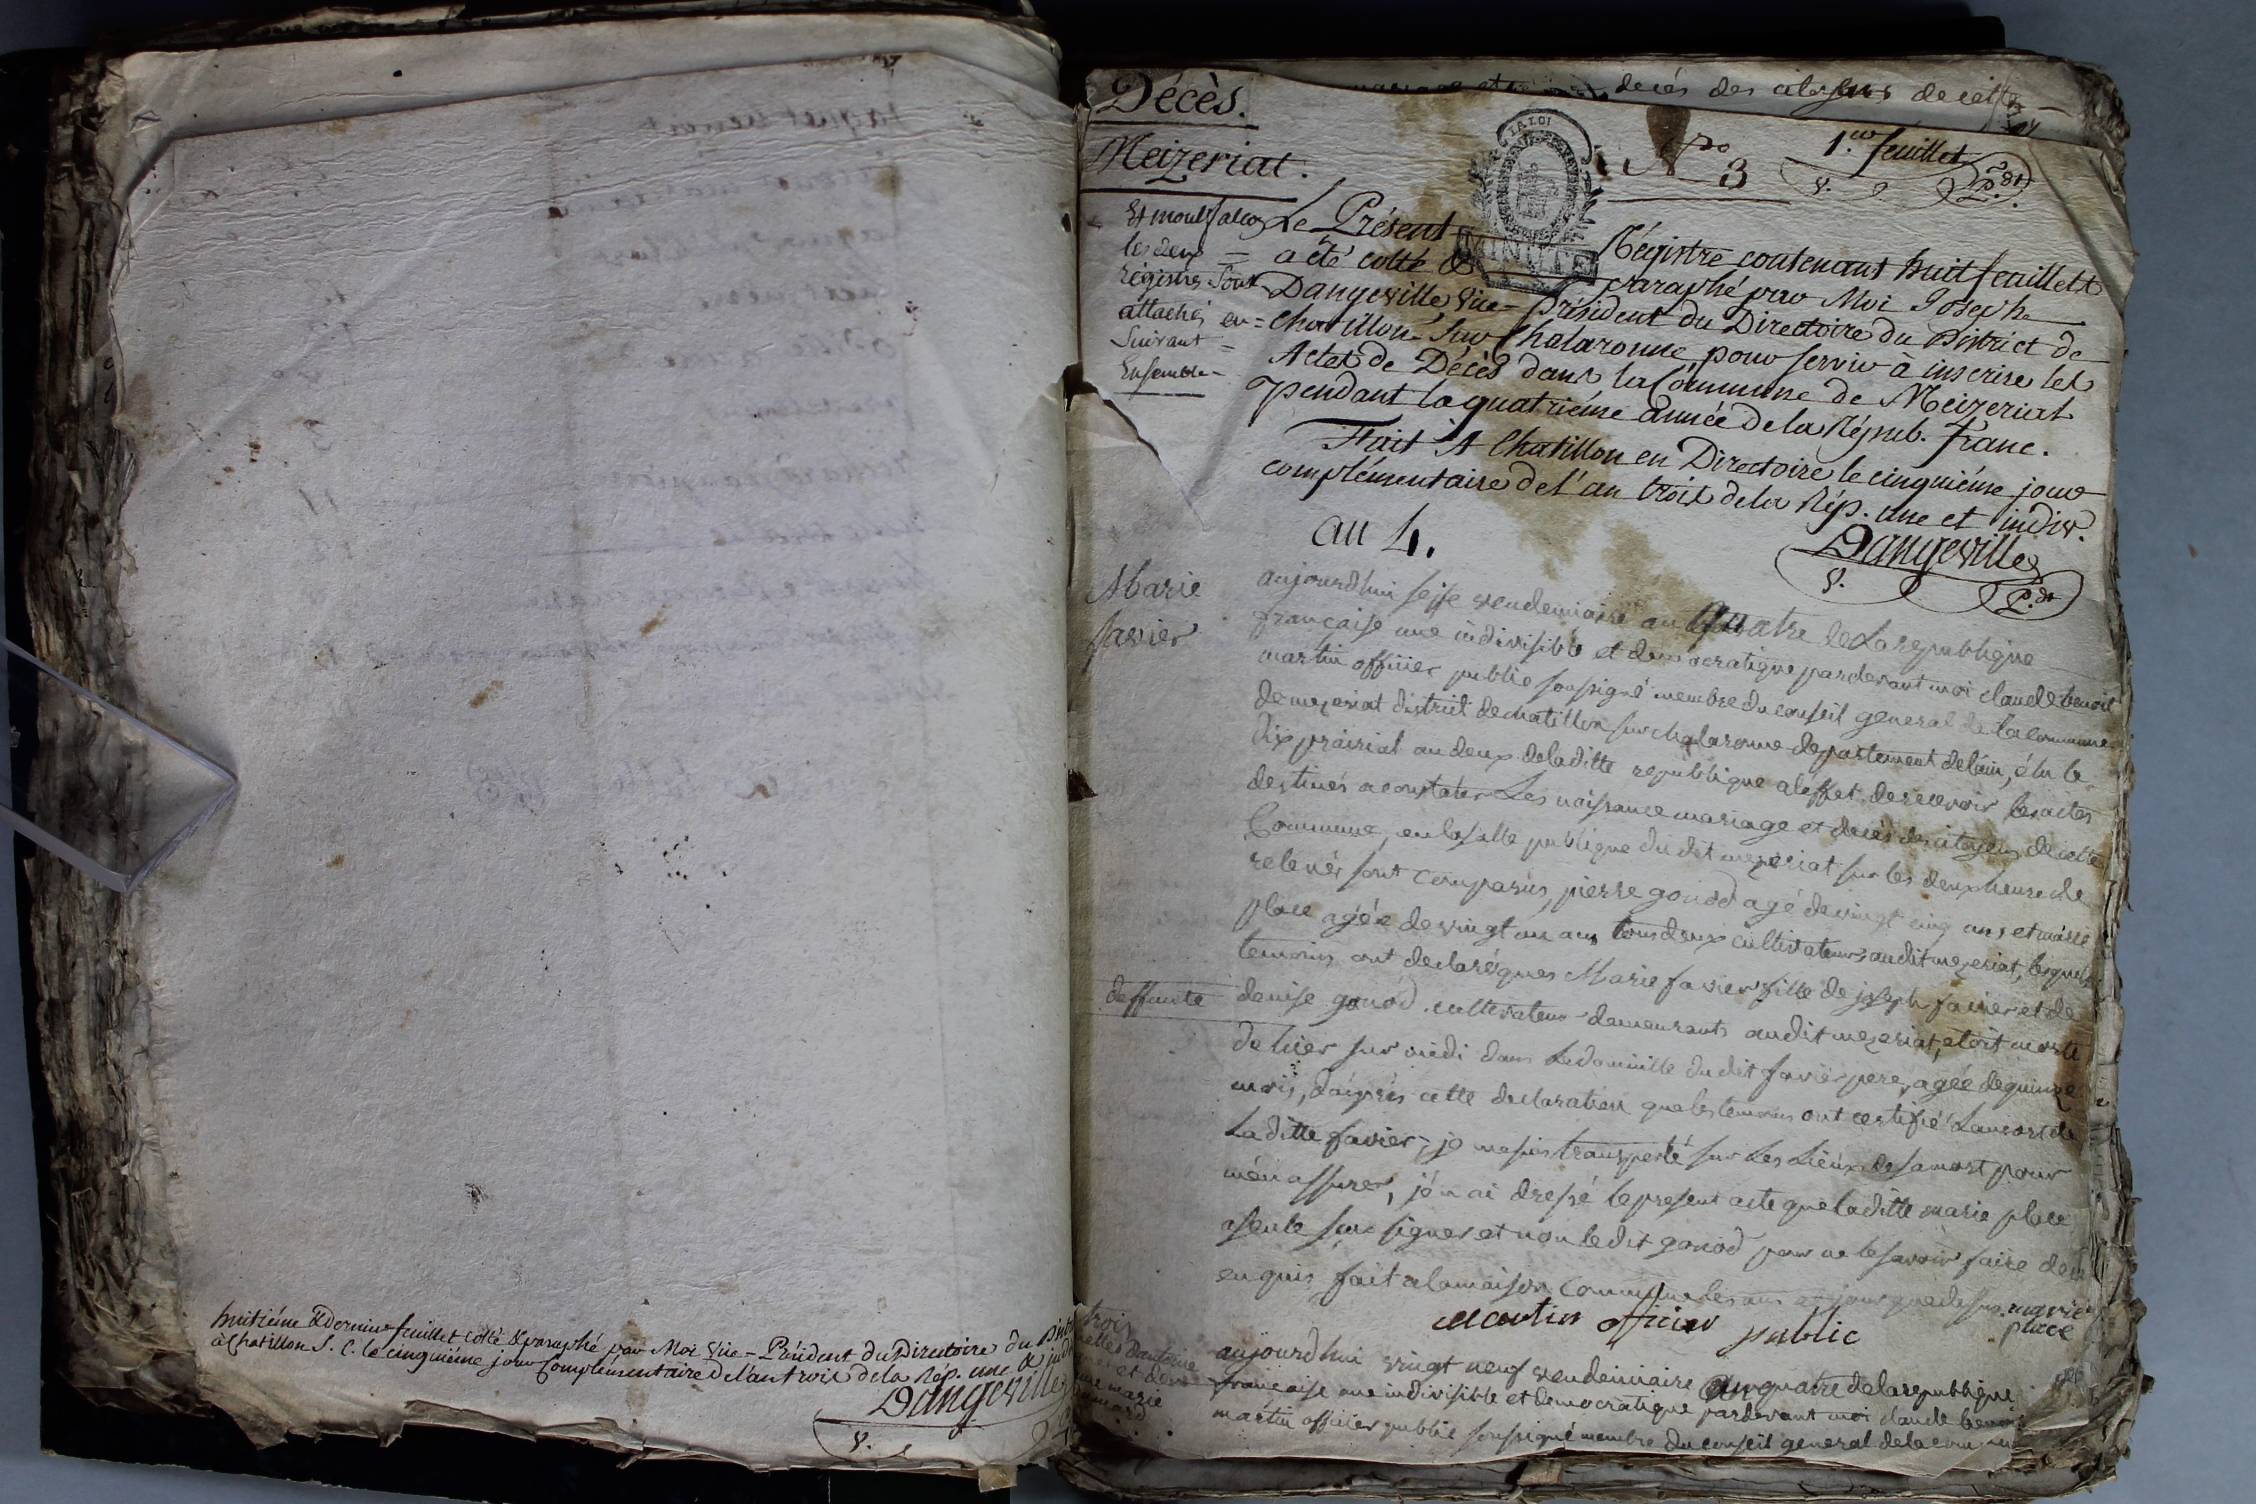 huitiéme & dernier feuillet cotté & paraphé par Moi Vice-Président du Directoire du
à Chatillon S. C. le cinquiéme jour Complémentaire de l'an trois de la Rép. une &
Dangeville
V.
mariage et décès des citoyens de cette
Décès.
Meizeriat.
LA LOI
MINUTE
Nro 3
1.er feuillet
V. P.dt
Et montfalcon
les deux =
régistres sont
attachés en =
Suivant =
Ensemble -
Le Présent Régistre contenant huit feuillets
a été cotté & paraphé par Moi Joseph
Dangeville, Vice-Président du Directoire du District de
Chatillon-sur Chalaronne, pour servir à inscrire les
Actes de Décès dans la Commune de Meizeriat
pendant la quatriéme année de la Répub. franc.
Fait A Chatillon en Directoire le cinquiéme jour
complémentaire de l'an trois de la Rép. une et indiv.
Dangeville
V. P.dt
an 4.
Marie
favier
aujourdhui seise vendemiaire an Quatre de La republique
française une indivisible et democratique pardevant moi claude benoit
martin officier public soussigné membre du conseil general de la commune
de mezeriat district de chatillon sur chalaronne departement de lain, élu le
dix prairial an deux de la ditte republique a leffet de recevoir les actes
destinés a constater Les naissance mariage et décès des citoyens de cette
Commune, en la salle publique du dit mezeriat sur les deux heure de
relevés sont comparus, pierre gonod agé de vingt cinq ans et marie
place agée de vingt un ans tous deux cultivateurs audit mezeriat, lesquels
temoins ont declaré que Marie favier fille de joseph favier et de
deffunte
denise gonod cultivateur demeurants audit mezeriat, etoit morte
de hier sur midi dans Le domicille du dit favier pere, agée de quinze
mois, daiprés cette declaration que les temoins ont certifié
La ditte favier, je me suis transporté sur Les Lieux de sa mort pour
m'en assurer, j'en ai dressé le present acte que la ditte marie place
a seule sue signer et non le dit gonod pour ne le savoir faire de ce
enquis fait a la maison commune les ans et jour que dessus marie
place
Martin officier public
trois
aujourdhui vingt neuf vendemiaire an quatre de la republique
française une indivisible et democratique pardevant moi claude benoit
martin officier public soussigné membre du conseil general de la commune